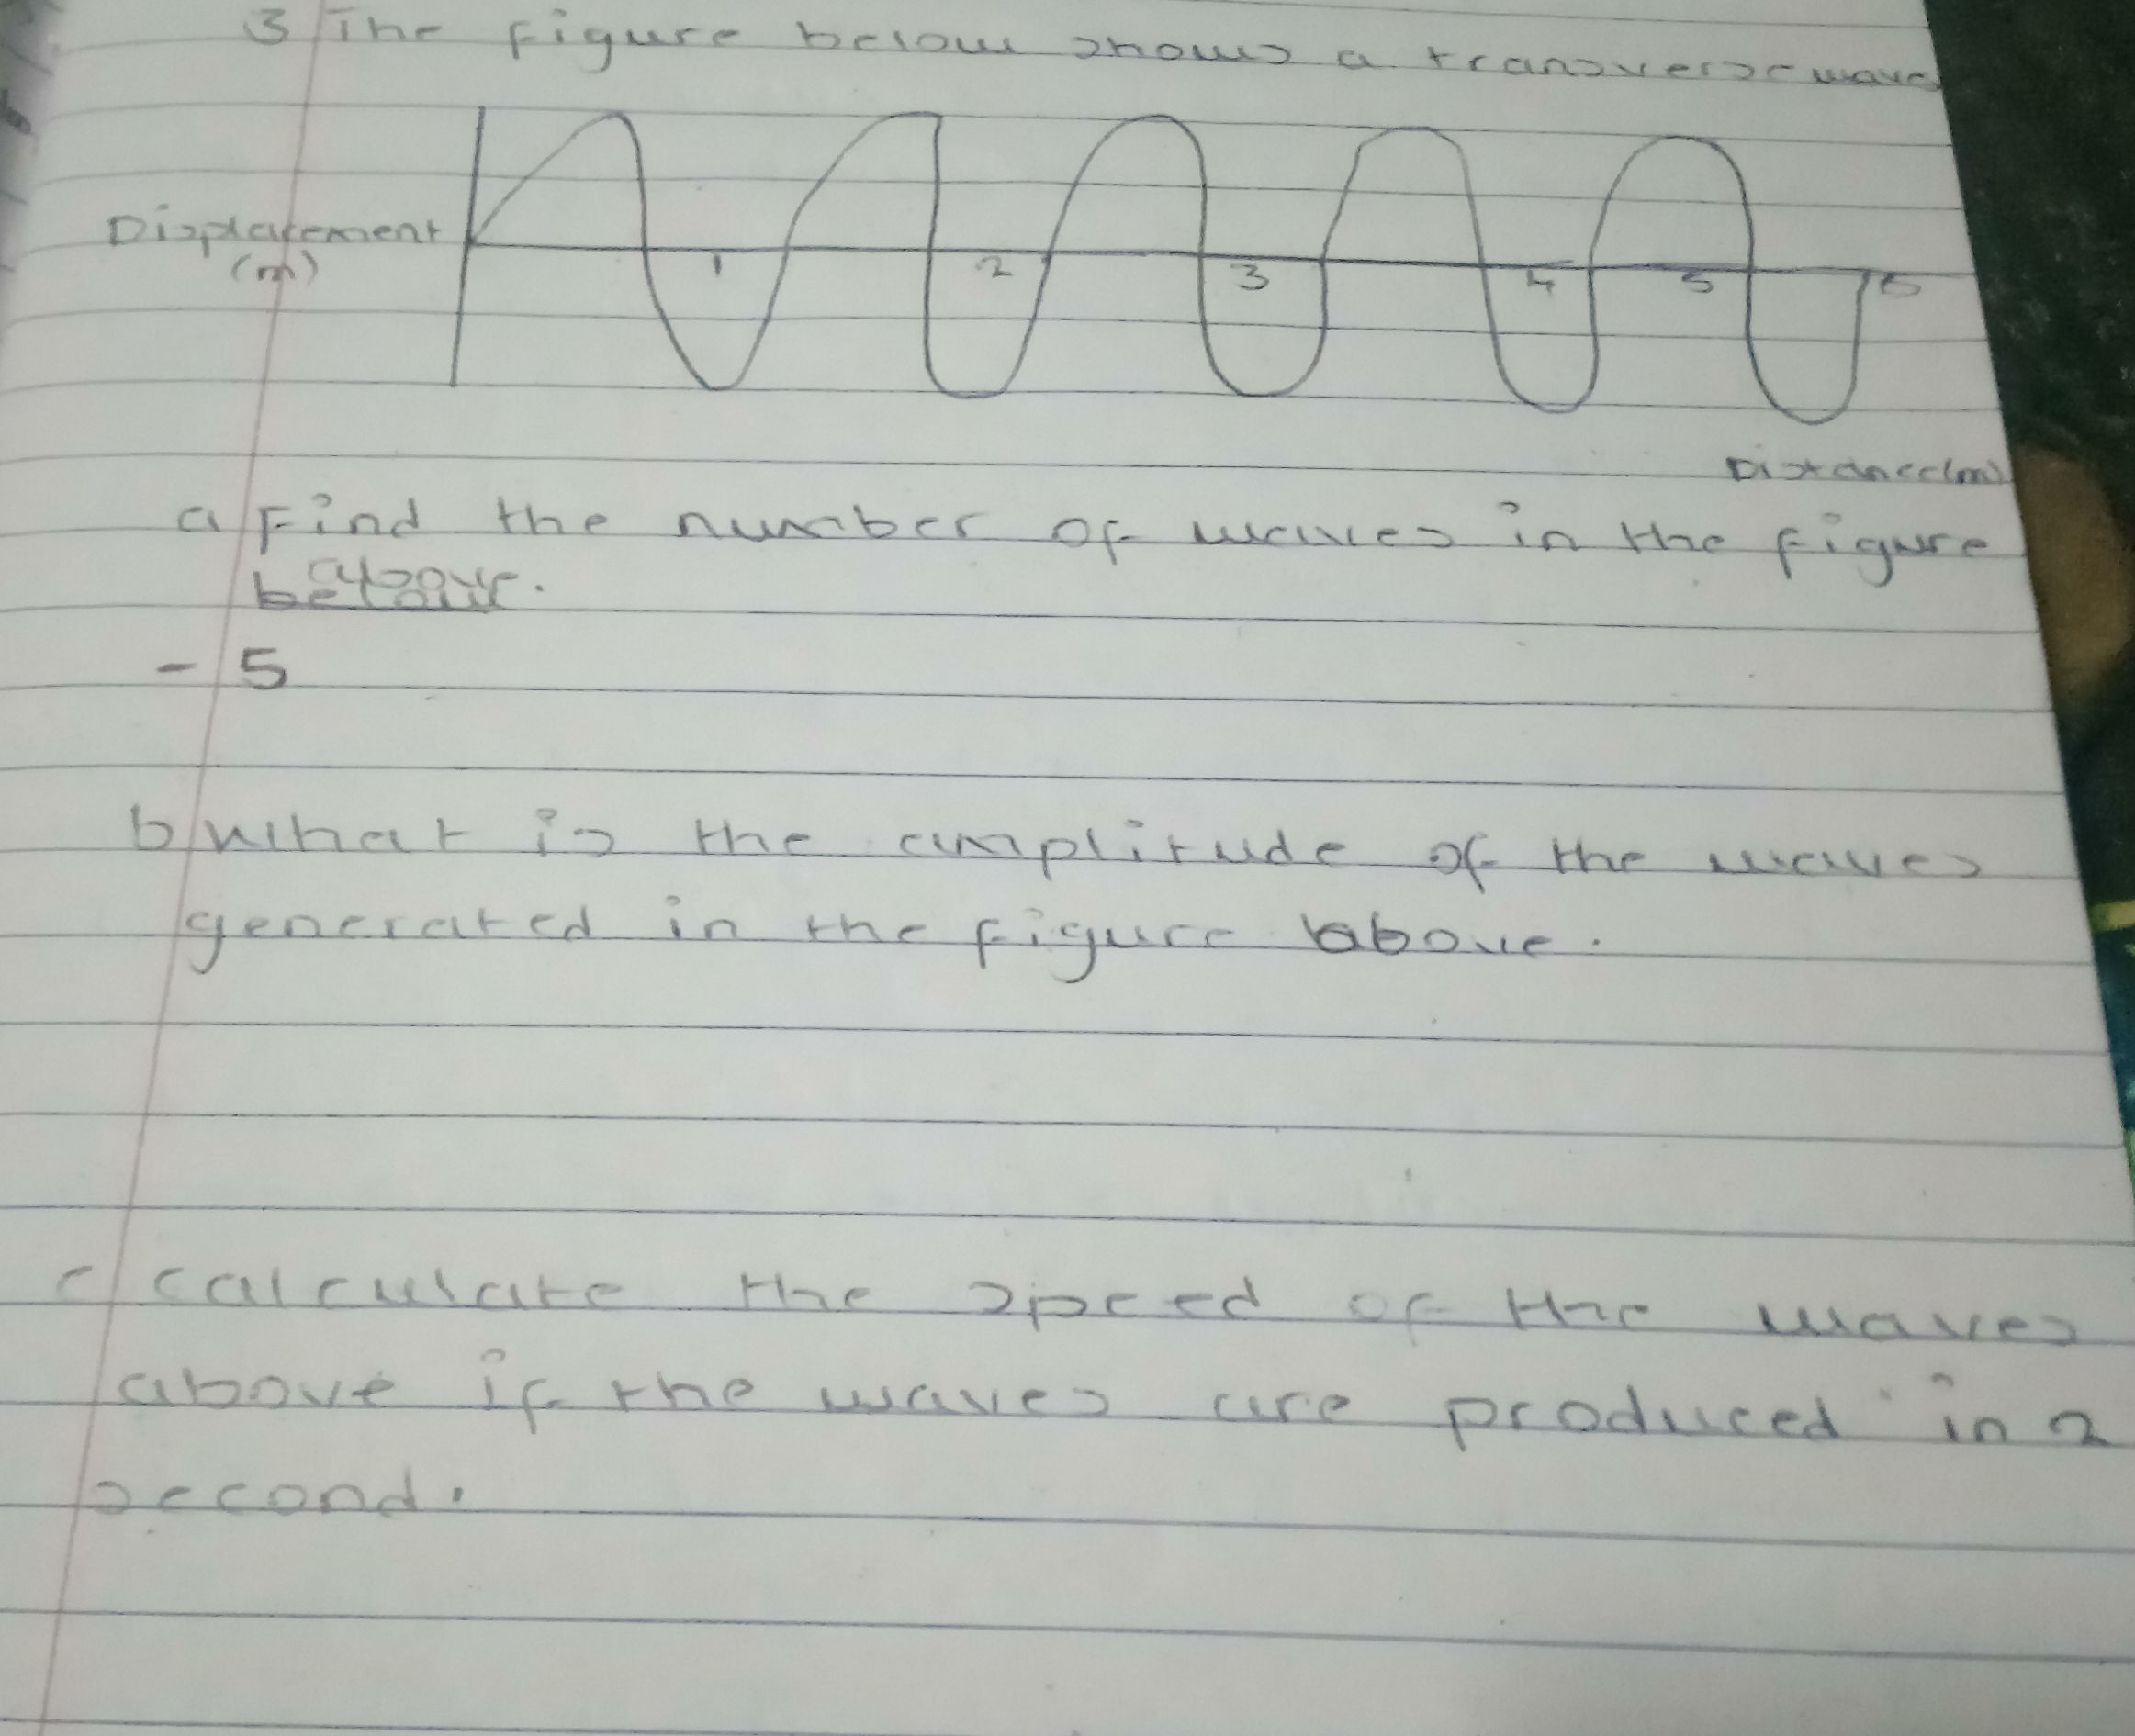 3 The figure below shows a transverse wave
Displacement
(m)
1 2 3 4 5 6
Distance(m)
a Find the number of waves in the figure
above
below.
- 5
b What is the amplitude of the waves
generated in the figure above.
c calculate the speed of the waves
above if the waves are produced in 2
second.